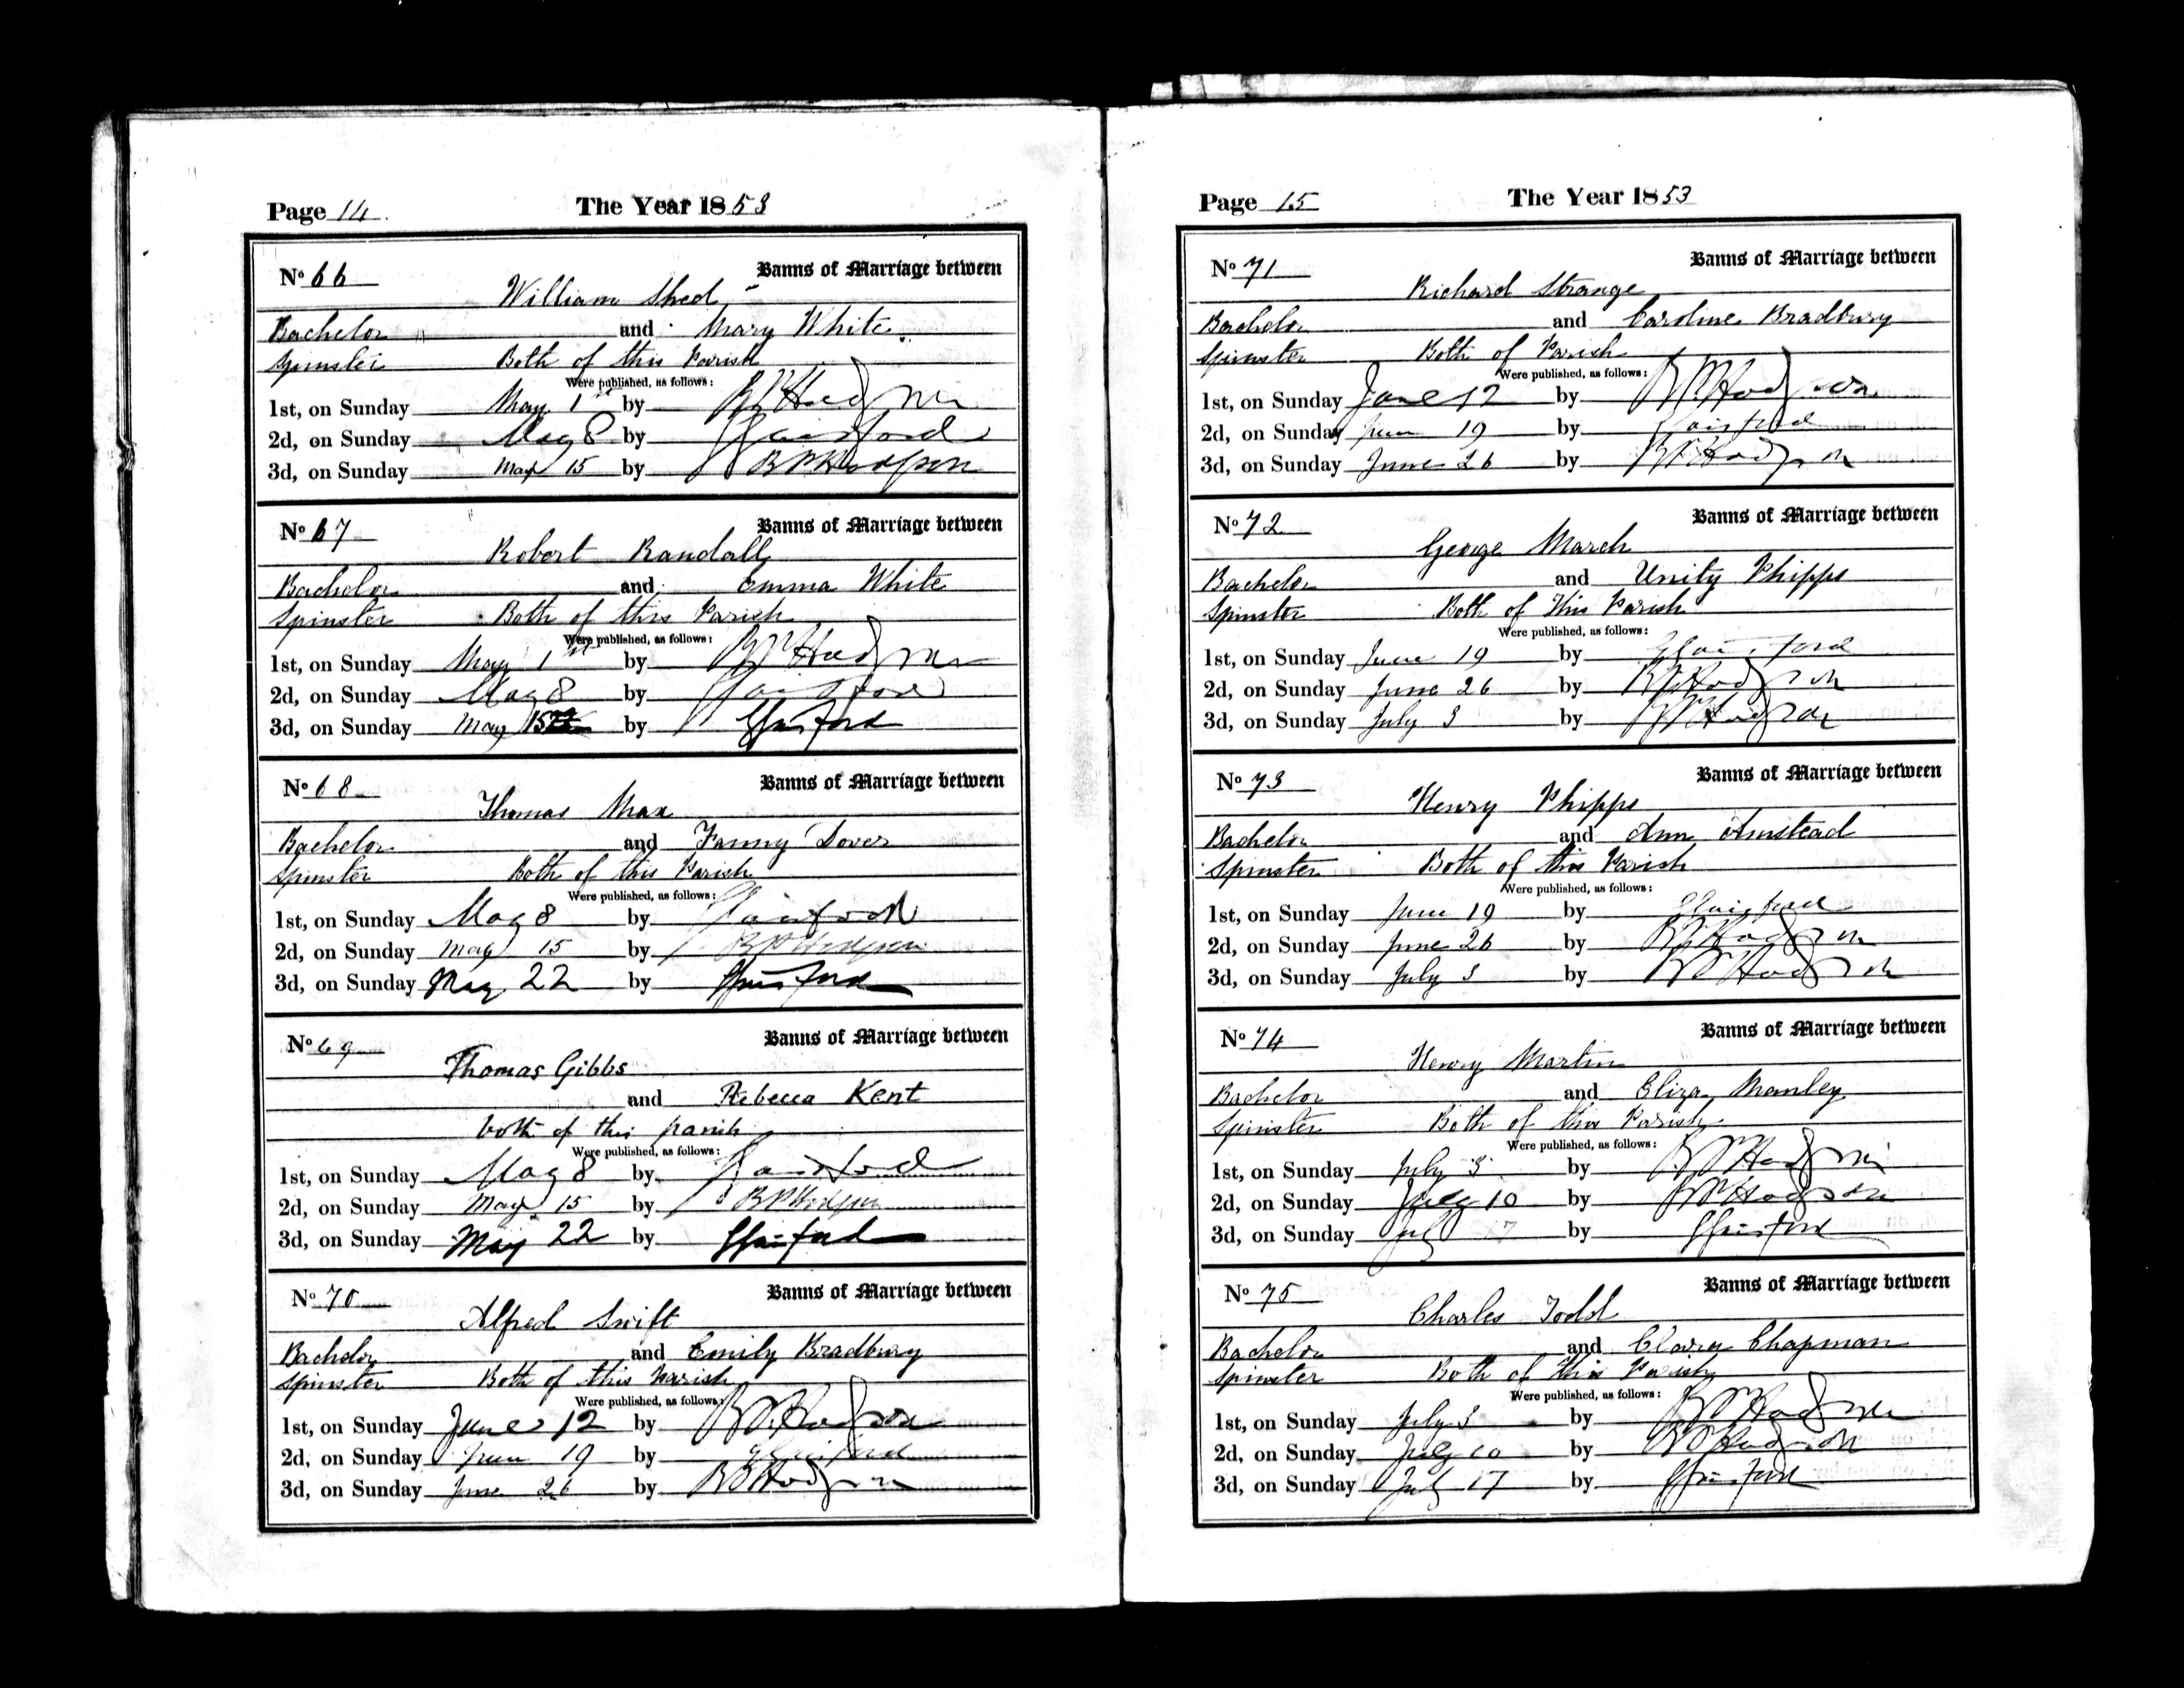 Page 14. The Year 1853
No. 66 Banns of Marriage between
William Shed
Bachelor and Mary White
Spinster Both of this Parish
Were published, as follows:
1st, on Sunday May 1st by Hodgson
2d, on Sunday May 8 by
3d, on Sunday May 15 by Hodgson
No. 67 Banns of Marriage between
Robert Randall
Bachelor and Emma White
Spinster Both of this Parish
Were published, as follows:
1st, on Sunday May 1st by Hodgson
2d, on Sunday May 8 by
3d, on Sunday May 15 by
No. 68 Banns of Marriage between
Thomas Max
Bachelor and Fanny Dover
Spinster Both of this Parish
Were published, as follows:
1st, on Sunday May 8 by
2d, on Sunday May 15 by Hodgson
3d, on Sunday May 22 by
No. 69 Banns of Marriage between
Thomas Gibbs
and Rebecca Kent
both of this parish
Were published, as follows:
1st, on Sunday May 8 by
2d, on Sunday May 15 by Hodgson
3d, on Sunday May 22 by
No. 70 Banns of Marriage between
Alfred Swift
Bachelor and Emily Bradbury
Spinster Both of this Parish
Were published, as follows:
1st, on Sunday June 12 by Hodgson
2d, on Sunday June 19 by
3d, on Sunday June 26 by Hodgson
Page 15 The Year 1853
No. 71 Banns of Marriage between
Richard Strange
Bachelor and Caroline Bradbury
Spinster Both of Parish
Were published, as follows:
1st, on Sunday June 12 by Hodgson
2d, on Sunday June 19 by
3d, on Sunday June 26 by Hodgson
No. 72 Banns of Marriage between
George March
Bachelor and Unity Phipps
Spinster Both of This Parish
Were published, as follows:
1st, on Sunday June 19 by
2d, on Sunday June 26 by Hodgson
3d, on Sunday July 3 by Hodgson
No. 73 Banns of Marriage between
Henry Phipps
Bachelor and Ann Amstead
Spinster Both of this Parish
Were published, as follows:
1st, on Sunday June 19 by
2d, on Sunday June 26 by Hodgson
3d, on Sunday July 3 by Hodgson
No. 74 Banns of Marriage between
Henry Martin
Bachelor and Eliza Manley
Spinster Both of this Parish
Were published, as follows:
1st, on Sunday July 3 by Hodgson
2d, on Sunday July 10 by Hodgson
3d, on Sunday July 17 by
No. 75 Banns of Marriage between
Charles Todd
Bachelor and Clara Chapman
Spinster Both of this Parish
Were published, as follows:
1st, on Sunday July 3 by Hodgson
2d, on Sunday July 10 by Hodgson
3d, on Sunday July 17 by